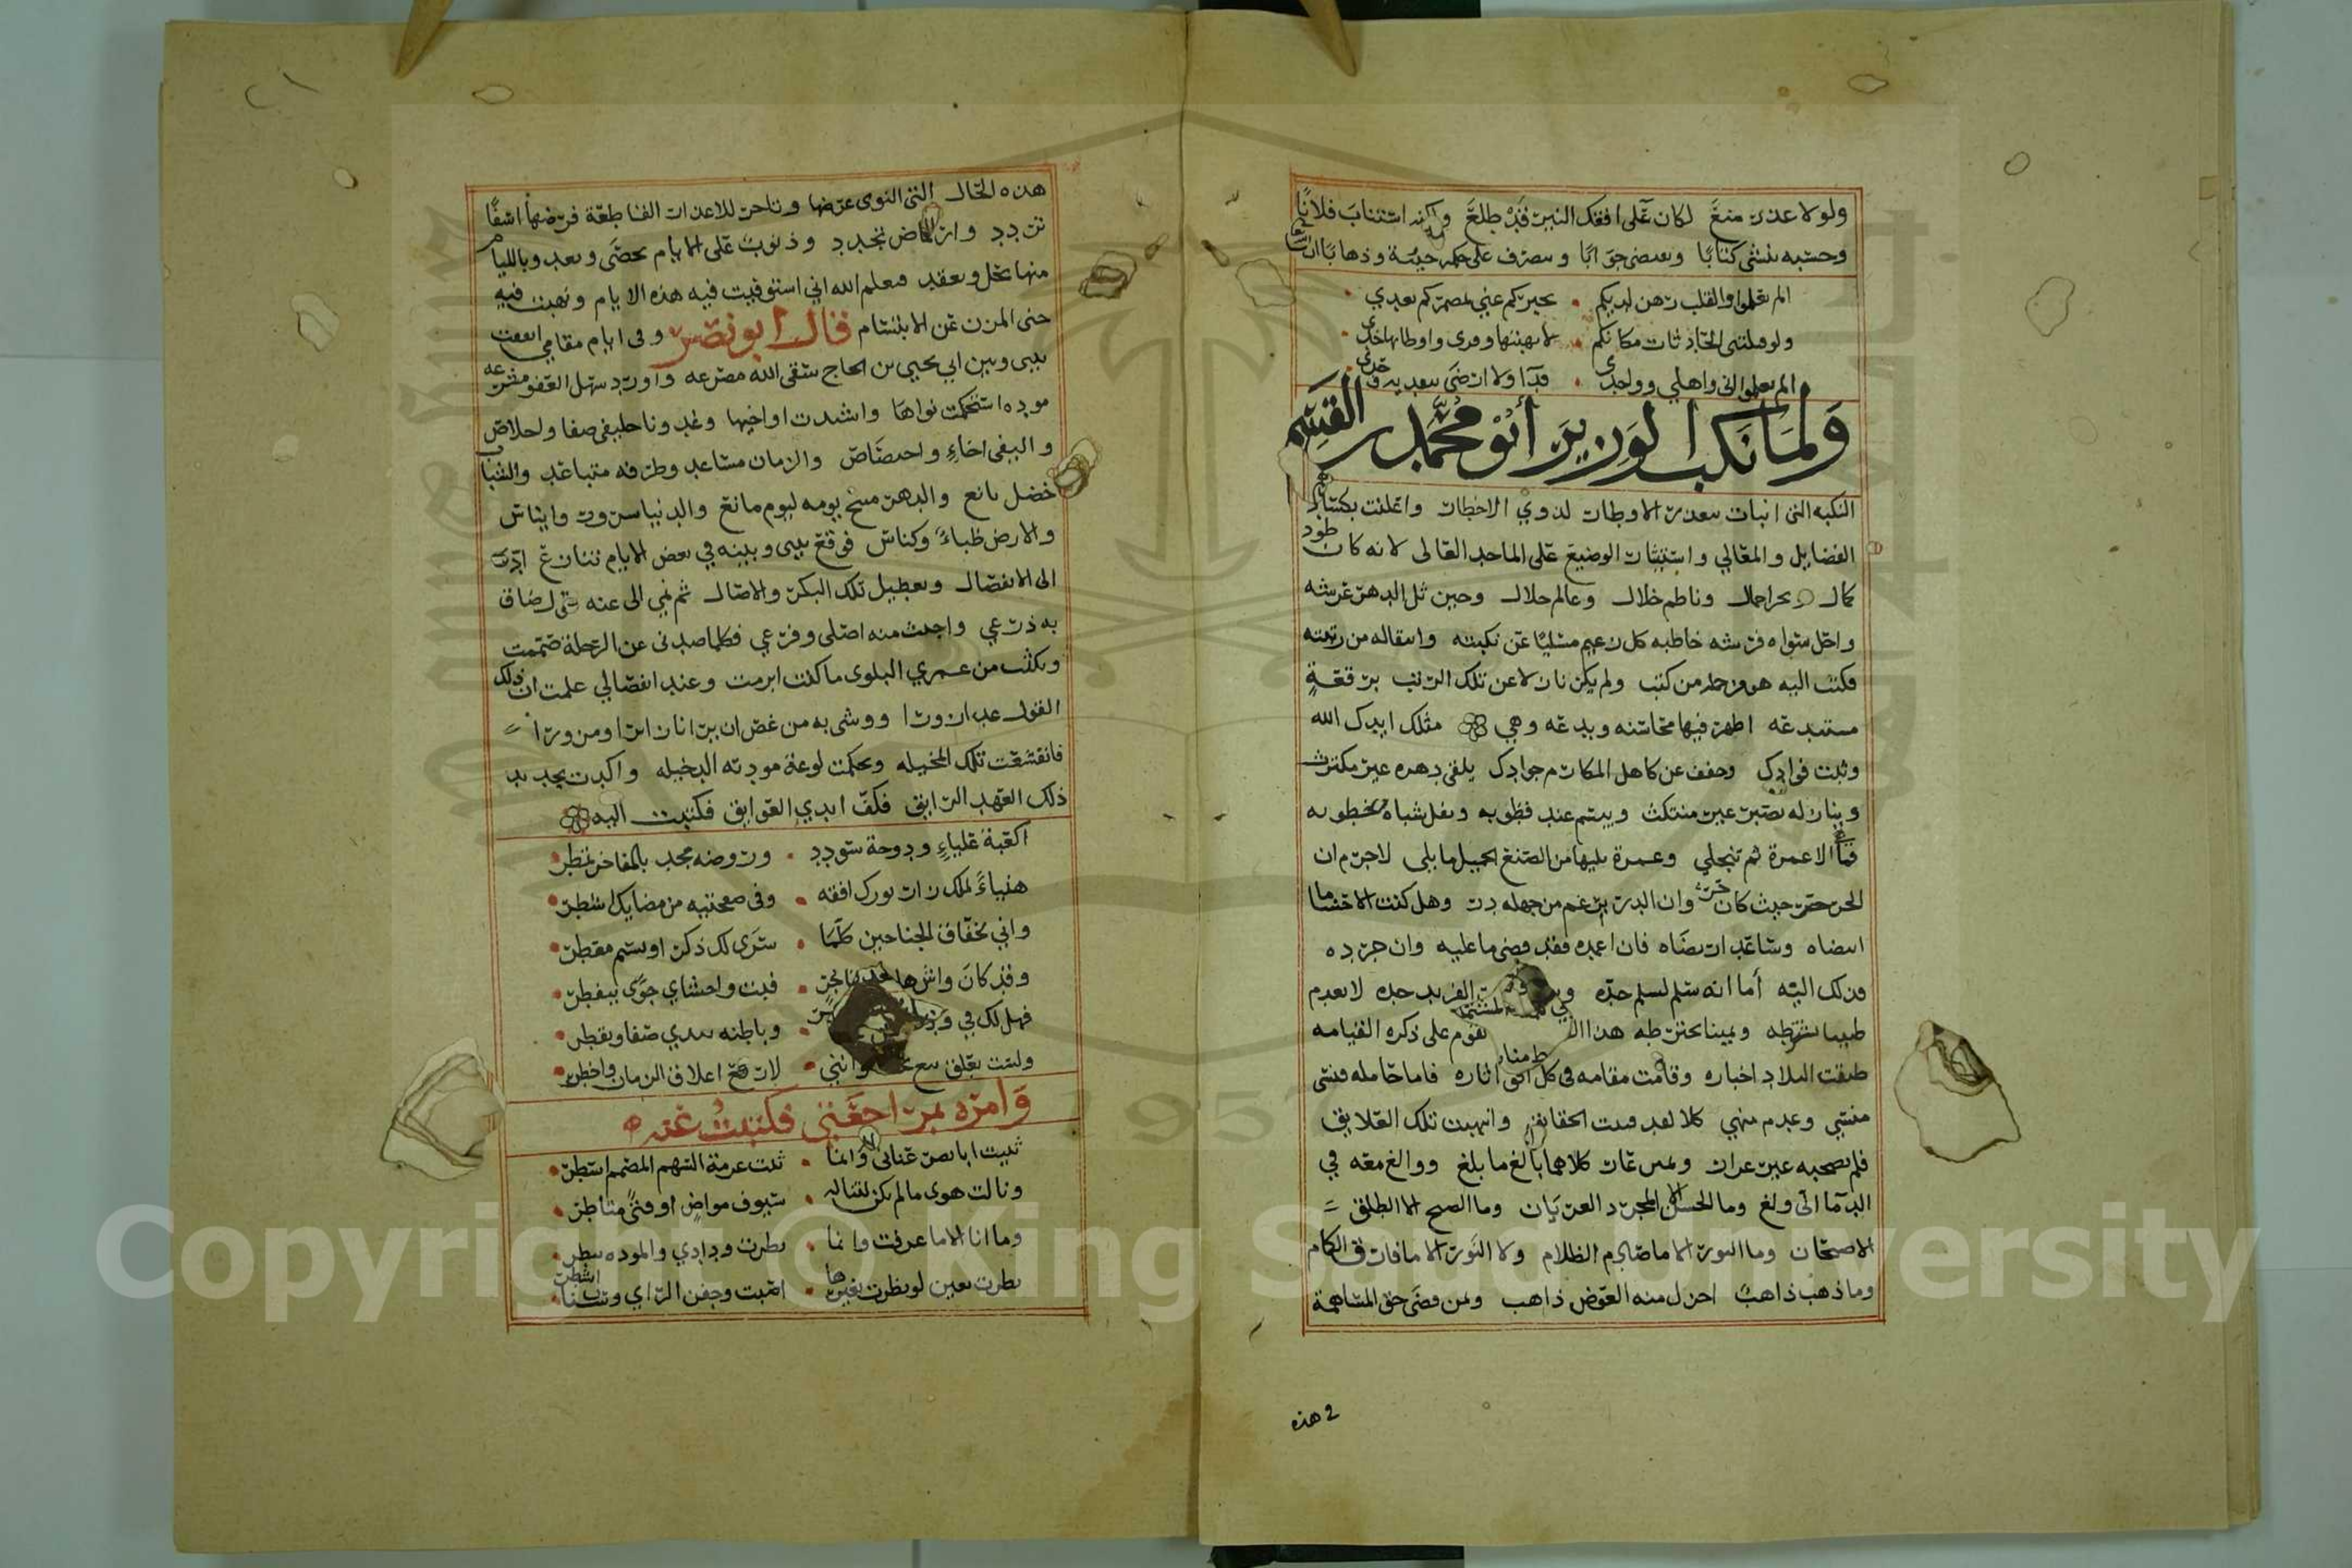 ولولا عذر منع لكان على افقك النير قد طلع ولكنه استناب فلانا
وحسبه ينشى كتابا ويعيض جوابا ويصرف على حكمه جيئة وذهابا
الم تعلموا والقلب رهن لديكم يخبركم عني بمضمركم بعدي
ولو قلبتني الحادثات مكانكم لانهبتها وفرى واوطاتها خدي
الم تعلموا انى واهلي وواحدى فدآ ولا ارضى بتفديه وحدى
ولما نكب الوزير أبو محمد بن القسم
النكبه التى انبات بتعذر الاوطار لذوي الاخطار واعلنت بكساد
الفضايل والمعالي واستئثار الوضيع على الماجد العالى لانه كان طود
كمال وبحر اجمال وناظم خلال وعالم جلال وحين ثل الدهر عرشه
واحل سواه فرشه خاطبه كل زعيم مسليا عن نكبته وانتقاله من رتبته
فكتب اليه هو من جملة من كتب ولم يكن نازلا عن تلك الرتب برقعة
مستبدعه اظهر فيها محاسنه وبدعه وهي مثلك ايدك الله
وثبت فوادك وخفف عن كاهل المكارم جوادك يلقى دهره غير مكترث
وينازله بصبر غير منتكث ويبسم عند قطوبه ويفل شباه خطوبه
فما هي الا غمرة ثم تنجلي وغمرة يليها من الصنع الجميل ما يلى لاجرم ان
الحر حر حيث كان وان الدر برغم من جهله در وهل كنت الا حساما
انتضاه وساعد ارتضاه فان اغمده فقد قضى ما عليه وان جرده
فذلك اليه أما انه سلم لسلم حده الفريد حده لا يعدم
طبيبا يشترطه ويمينا تخترطه هذا تقوم على ذكره القيامه
طبقت البلاد اخباره وقامت مقامه فى كل افق اثاره فاما حامله فنسي
منسي وعدم منهي كلا لقد فنت الحقايق وانبهت تلك العلايق
فلم يصحبه غير عرار ولمس غار كلاهما بالغ ما بلغ ووالغ معه في
الدما الى ولغ وما الحسن الا المجرد العريان وما الصبح الا الطلق
الاصحان وما النور الا ما صادم الظلام ولا النور الا ما فارق الكمام
وما ذهب ذاهب اجزل منه العوض ذاهب ولمن قضى حق المساهمة
2 هذه
هذه الحال التى النوى عرضها وتاخر للاعذار القاطعة فرضها اسفا
تردد وارتماض تجدد وذنوب على الايام تحصى وتعد وبالليام
منها تحل وتعقد فيعلم الله اني استوفيت فيه هذه الايام ونهيت فيه
حتى المزن عن الابتسام قال ابو نصر وفى ايام مقامي اتفقت
بينى وبين ابي يحيى بن الحاج سقى الله مصرعه واورد سهل العفو مشرعه
موده استحكمت نواها واشتدت اواخيها وغدونا حليفى صفا واخلاص
واليفى اخاء واختصاص والزمان مساعد وطرفه متباعد والشباب
خضل يانع والدهر مبيح يومه ليوم مانع والدنيا سرور وايناس
والارض ظباء وكناس فوقع بينى وبينه في بعض الايام تنازع ادى
الى الانفصال وتعطيل تلك البكر والاصال ثم نمي الى عنه شي ضاق
به ذرعي واجتث منه اصلى وفرعي فكلما صدنى عن الرحلة صممت
ونكثت من عمري البلوى ما كنت ابرمت وعند انفصالي علمت ان ذلك
القول غدا زورا ووشى به من غص ان يرانا زايرا ومزورا
فانقشعت تلك المخيله وتحكمت لوعة مودته الدخيله واكدت تجديد
ذلك العهد الرايق فكف ايدي العوايق فكتبت اليه
اكعبة علياء ودوحة سودد وروضه مجد بالمفاخر تمطر
هنياء لملك زار نورك افقه وفى صفحتيه من مضايك اسطر
واني لخفاق الجناحين كلما سرى لك ذكر او نسيم معطر
وقد كان واش هاجنا لتهاجر فبت واحشاي جوى تتفطر
فهل لك في ود وباطنه يندى صفا ويقطر
ولست بعلق بيع وانني لارفع اعلاق الزمان واخطر
وامره بمراجعتي فكتبت عنه
ثنيت ابا نصر عناني وانما ثنت عزمة الشهم المصمم اسطر
ونالت هوى ما لم تكن لتناله سيوف مواض او قنى متاطر
وما انا الا ما عرفت وانما بطرت ودادي والموده تبطر
نظرت بعين لو نظرت بغيرها اصبت وجفن الراي وسنان اشطر